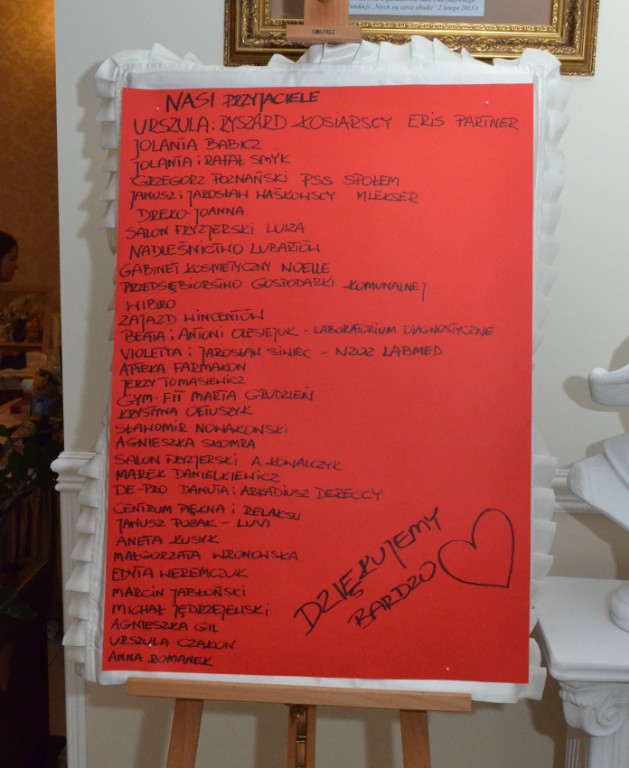 Fundacji „Niech się serce obudzi" 2 lutego 2013 r.
NASI PRZYJACIELE
URSZULA i RYSZARD KOSIARSCY ERIS PARTNER
JOLANTA BABICZ
JOLANTA i RAFAŁ SMYK
GRZEGORZ POZNAŃSKI PSS SPOŁEM
JANUSZ i JAROSŁAW WAŚKOWSCY MLEKSER
DREKO-JOANNA
SALON FRYZJERSKI LUIZA
NADLEŚNICTWO LUBARTÓW
GABINET KOSMETYCZNY NOELLE
PRZEDSIĘBIORSTWO GOSPODARKI KOMUNALNEJ
WIBRO
ZAJAZD WINCENTÓW
BEATA i ANTONI OLESIEJUK - LABORATORIUM DIAGNOSTYCZNE
VIOLETTA i JAROSŁAW SIWIEC - NZOZ LABMED
APTEKA FARMAKON
JERZY TOMASIEWICZ
GYM-FIT MARTA GRUDZIEŃ
KRYSTYNA OLTUSZYK
SŁAWOMIR NOWAKOWSKI
AGNIESZKA SKOMRA
SALON FRYZJERSKI A. KOWALCZYK
MAREK DANIELKIEWICZ
DE-PRO DANUTA i ARKADIUSZ DERECCY
CENTRUM PIĘKNA i RELAKSU
JANUSZ POŻAK - LUVI
ANETA KUSYK
MAŁGORZATA WRONOWSKA
EDYTA WEREMCZUK
MARCIN JABŁOŃSKI
MICHAŁ JĘDRZEJEWSKI
AGNIESZKA GIL
URSZULA CZAKON
ANNA ROMANEK
DZIĘKUJEMY
BARDZO